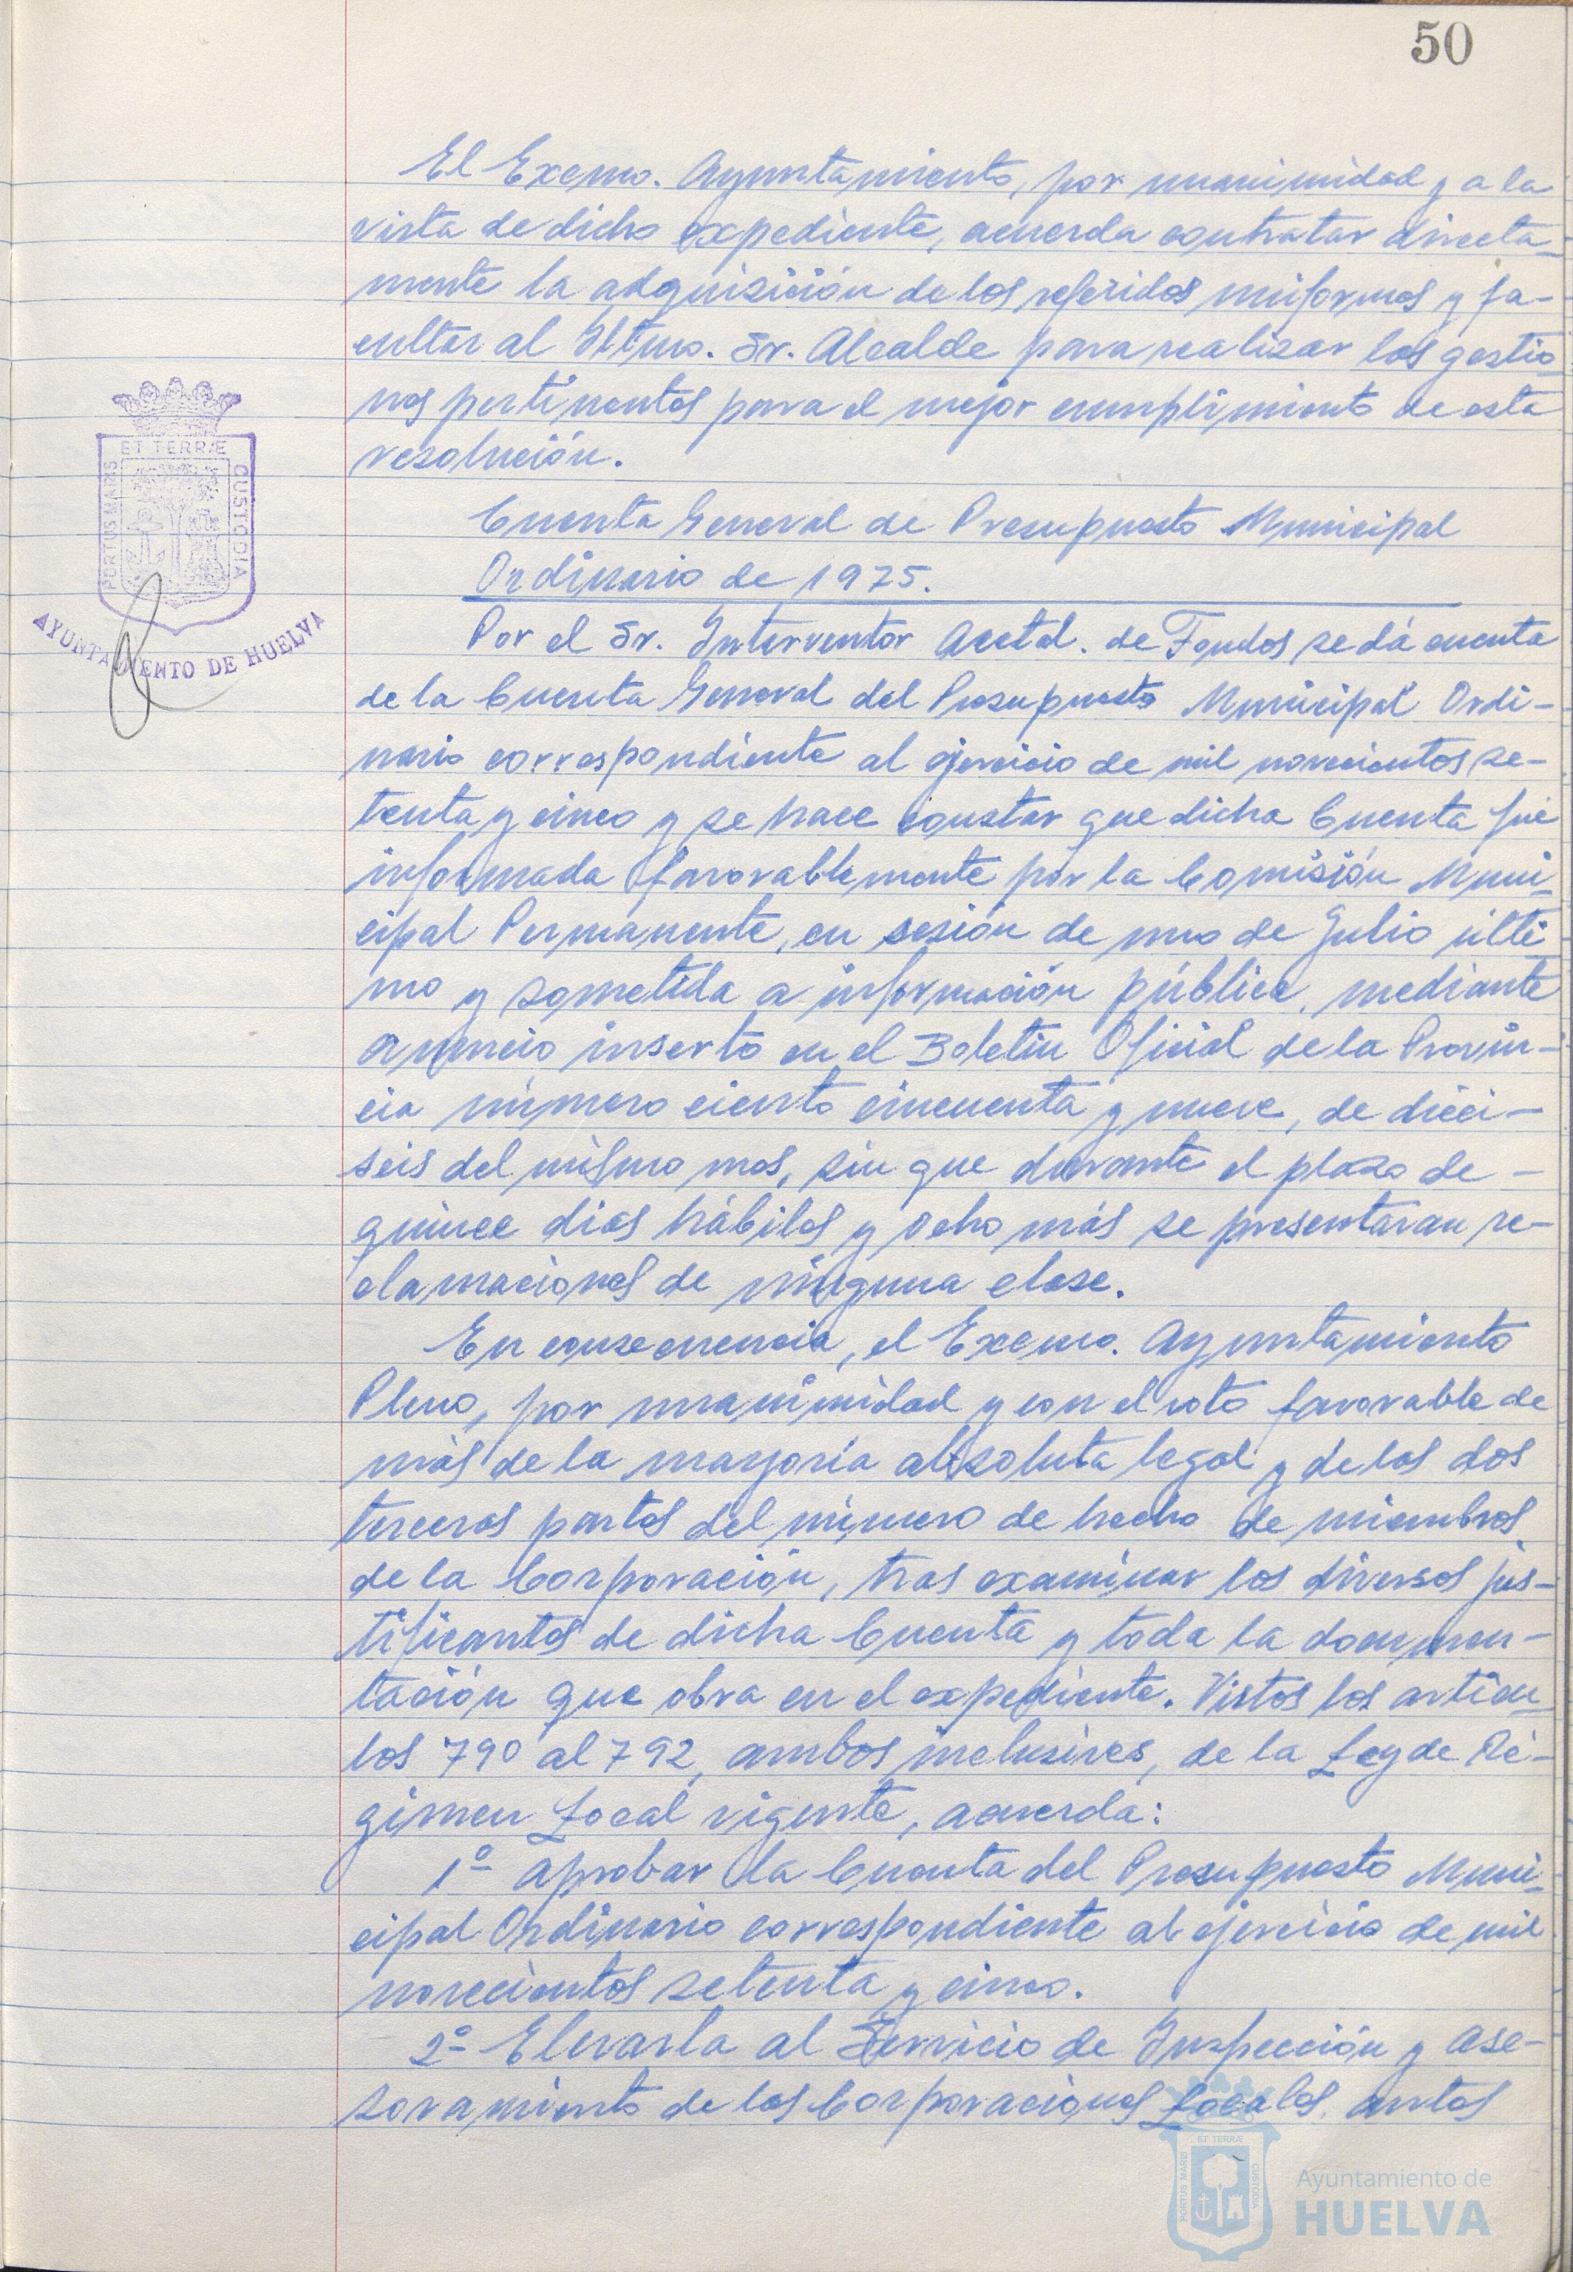 50
El Excmo. Ayuntamiento, por unanimidad y a la
vista de dicho expediente, acuerda contratar directa-
mente la adquisición de los referidos uniformes y fa-
cultar al Iltmo. Sr. Alcalde para realizar las gestio-
nes pertinentes para el mejor cumplimiento de esta
resolución.
Cuenta General de Presupuesto Municipal
Ordinario de 1975.
Por el Sr. Interventor Acctal. de Fondos se dá cuenta
de la Cuenta General del Presupuesto Municipal Ordi-
nario correspondiente al ejercicio de mil novecientos se-
tenta y cinco y se hace constar que dicha Cuenta fué
informada favorablemente por la Comisión Muni-
cipal Permanente, en sesión de uno de Julio últi-
mo y sometida a información pública, mediante
anuncio inserto en el Boletín Oficial de la Provin-
cia número ciento cincuenta y nueve, de dieci-
seis del mismo mes, sin que durante el plazo de -
quince dias hábiles y ocho más se presentaran re-
clamaciones de ninguna clase.
En consecuencia, el Excmo. Ayuntamiento
Pleno, por unanimidad y con el voto favorable de
más de la mayoría absoluta legal y de las dos
terceras partes del número de hecho de miembros
de la Corporación, tras examinar los diversos jus-
tificantes de dicha Cuenta y toda la documen-
tación que obra en el expediente. Vistos los artícu-
los 790 al 792, ambos inclusives, de la Ley de Ré-
gimen Local vigente, acuerda:
1º Aprobar la Cuenta del Presupuesto Muni-
cipal Ordinario correspondiente al ejercicio de mil
novecientos setenta y cinco.
2º Elevarla al Servicio de Inspección y Ase-
soramiento de las Corporaciones Locales, antes
PORTUS MARIS
ET TERRÆ
CUSTODIA
AYUNTAMIENTO DE HUELVA
PORTUS MARIS
ET TERRÆ
CUSTODIA
Ayuntamiento de
HUELVA